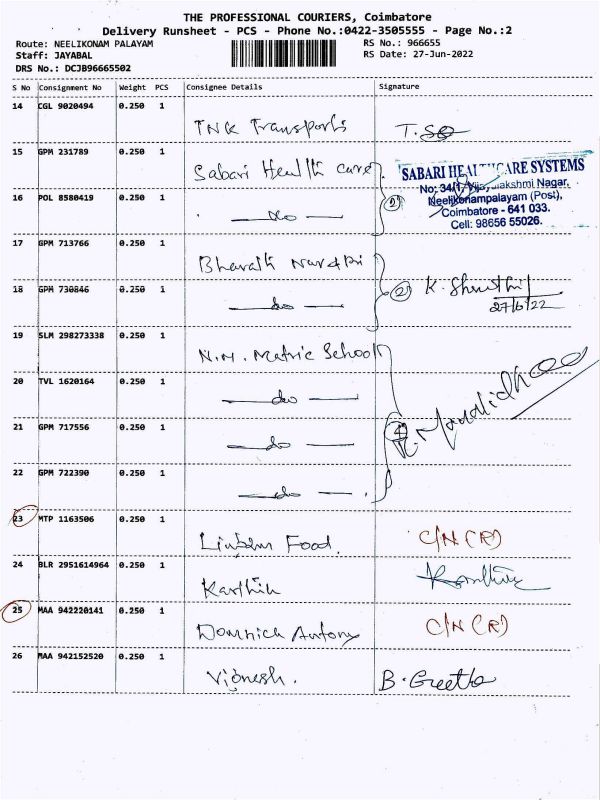 THE PROFESSIONAL COURIERS, Coimbatore
Delivery Runsheet - PCS - Phone No.:0422-3505555 - Page No.:2
Route: NEELIKONAM PALAYAM
Staff: JAYABAL
DRS No.: DCJB96665502
RS No.: 966655
RS Date: 27-Jun-2022
S No Consignment No Weight PCS Consignee Details Signature
14 CGL 9020494 0.250 1
TNK Transports T.S
15 GPM 231789 0.250 1
Sabari Health care
SABARI HEALTHCARE SYSTEMS
No: 34/1, Vijayalakshmi Nagar,
Neelikonampalayam (Post),
Coimbatore - 641 033.
Cell: 98656 55026.
16 POL 8580419 0.250 1
— do — 2
17 GPM 713766 0.250 1
Bharath
18 GPM 730846 0.250 1
— do — 2 K. Shruthi
27/6/22
19 SLM 298273338 0.250 1
N.M. Matric School
20 TVL 1620164 0.250 1
— do —
21 GPM 717556 0.250 1
— do — 4
22 GPM 722390 0.250 1
— do — .
23 MTP 1163506 0.250 1
Food. C/N (R)
24 BLR 2951614964 0.250 1
Karthik
25 MAA 942220141 0.250 1
Dominick Antony C/N (R)
26 MAA 942152520 0.250 1
Vignesh. B. Geetha